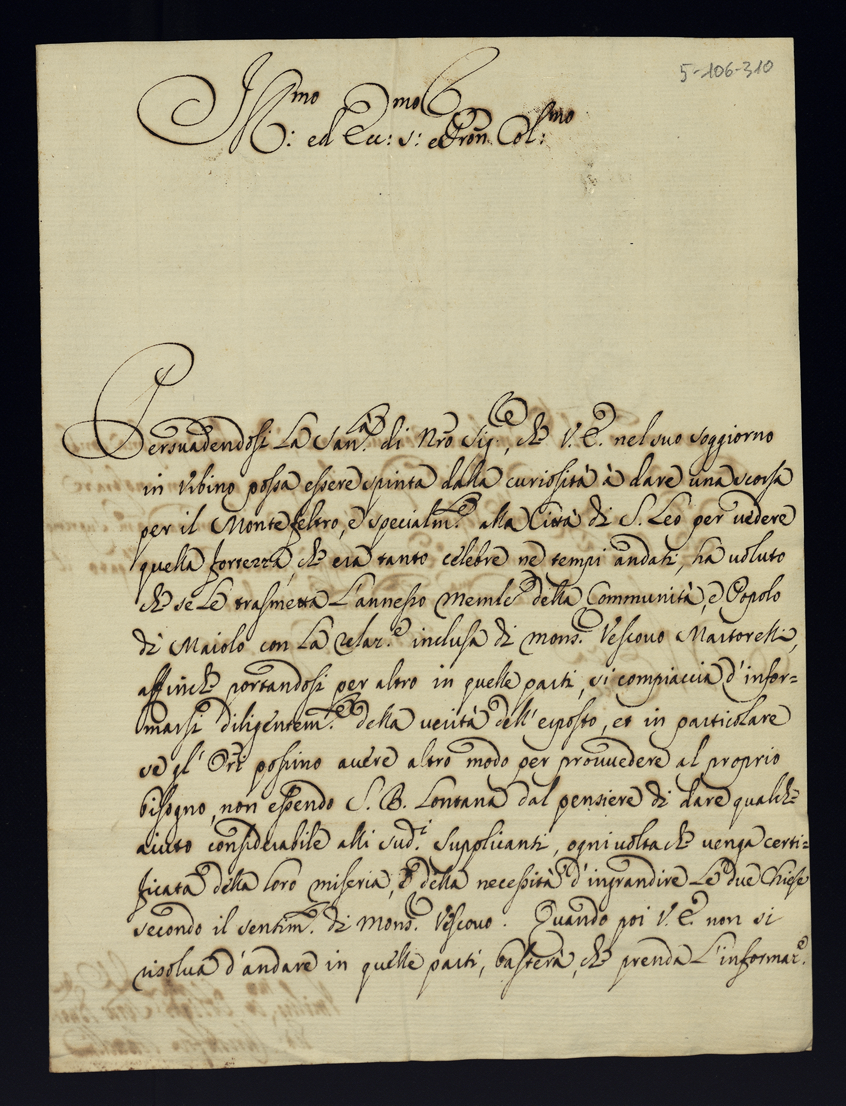 5-106-310
Ill.mo ed Ecc.mo S: e Pron Col:mo
Persuadendosi la San.tà di Nro Sig.re, che V. E. nel suo soggiorno
in Vrbino possa essere spinta dalla curiosità à dare una scorsa
per il Monte feltro, e specialm.te alla Città di S. Leo per vedere
quella fortezza, che era tanto celebre ne tempi andati, ha voluto
che se le trasmetta l'annesso Memle della Communità, e Popolo
di Maiolo con la relaz.e inclusa di mons.r Vescovo Martorelli,
affinche portandosi per altro in quelle parti, si compiaccia d'infor-
marsi diligentem.te della verità dell'esposto, et in particolare
se gl'Ori possino avere altro modo per provvedere al proprio
bisogno, non essendo S. B. lontana dal pensiere di dare qualche
aiuto considerabile alli sud.i supplicanti, ogni volta che venga certi-
ficata della loro miseria, e della necessità d'ingrandire le due Chiese
secondo il sentim.to di Mons.r Vescovo. Quando poi V. E. non si
risolva d'andare in quelle parti, basterà, che prenda l'informaz.e